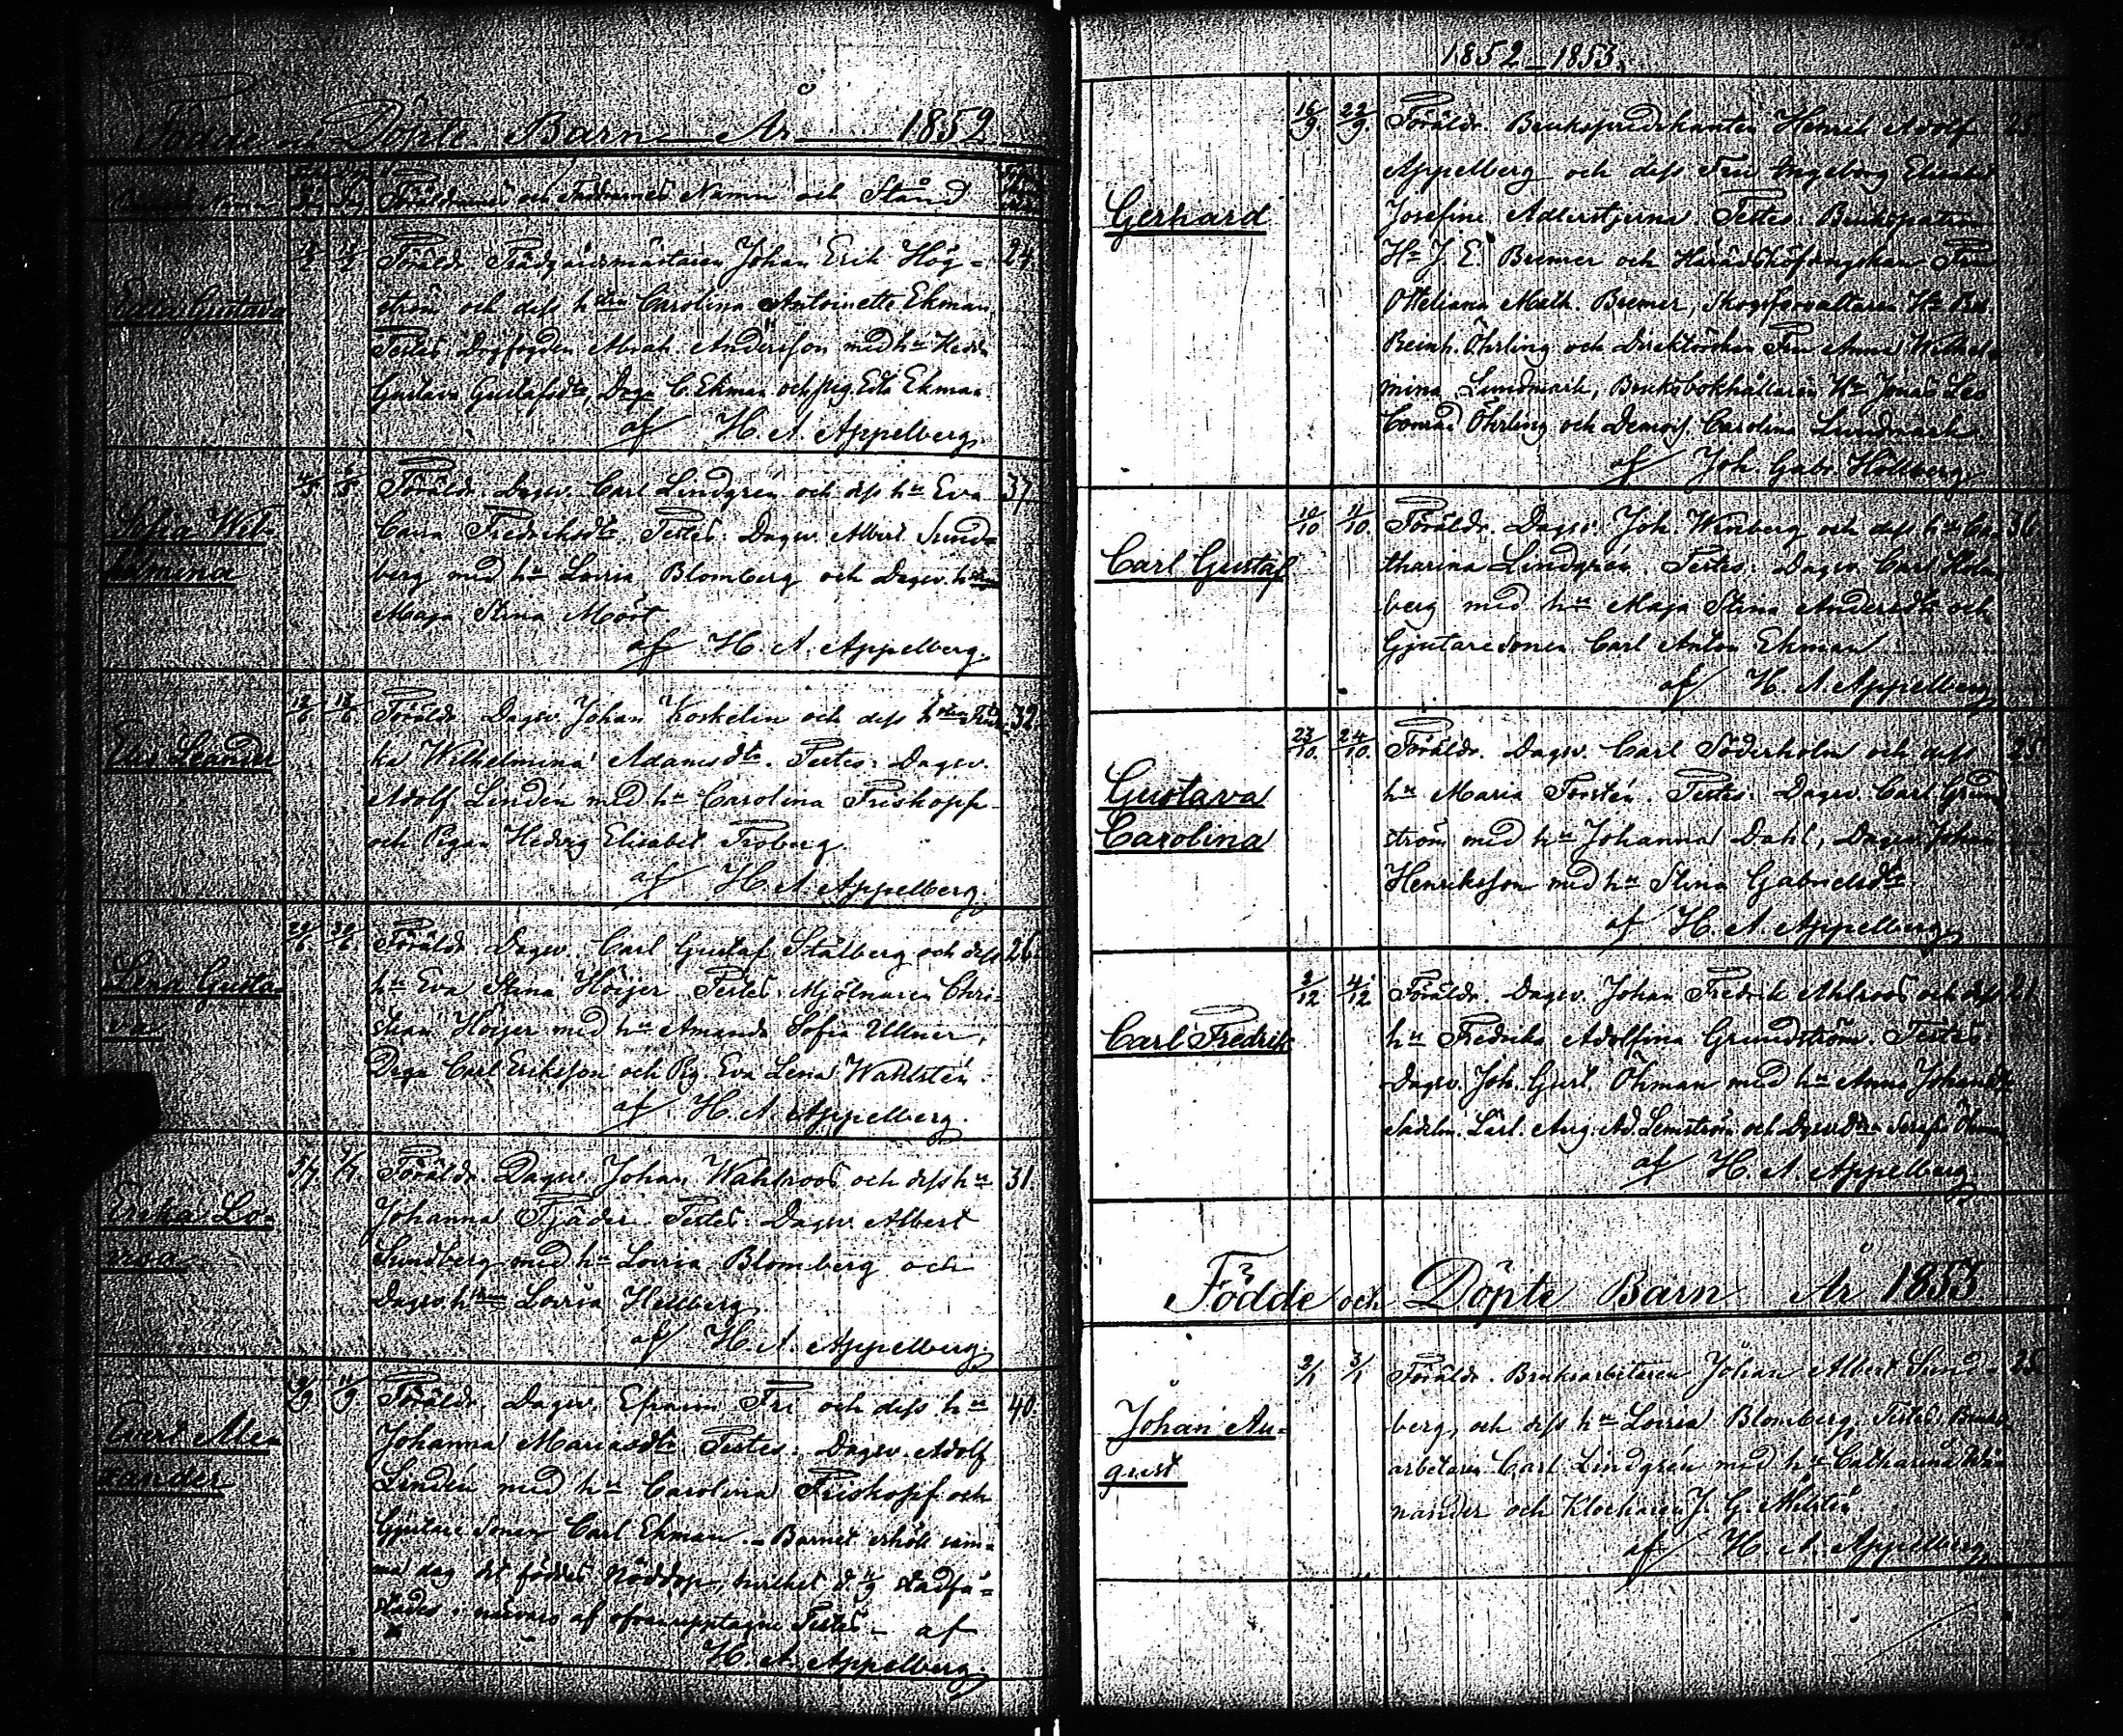 Födde och Döpte Barn År 1852
Föräldrarnes och Faddrarnes Namn och Stånd
Edla Gustava
Föräldr. Trädgårdsmästaren Johan Erik Hög-
ström och dess hstru Carolina Antoinette Ekman
Testes Andersson med hu Hedda
Gustava Gustafsdtr, C. Ekman och pig. Edla Ekman
af H. A. Appelberg.
Sofia Wil-
helmina
Föräldr. Dagsv. Carl Lindgrén och dess hu Eva 37.
Caisa Fredriksdtr. Testes: Dagsv. Albert Sund-
berg med hu Lovisa Blomberg och Dagsv. hstrun
Maja Stina Mört
af H. A. Appelberg.
Elis Leander
Föräldr. Dagsv. Johan Koskelin och dess hstru Fredri- 32.
ka Wilhelmina Adamsdtr. Testes: Dagsv.
Adolf Lindén med hu Carolina Friskopf
och Pigan Hedvig Elisabet Froberg
af H. A. Appelberg.
Lena Gusta-
va
29/6. 30/6. Föräldr. Dagsv. Carl Gustaf Stålberg och dess 26.
hu Eva Stina Höijer Testes. Mjölnaren Chri-
stian Höijer med hu Amanda Sofia Ullner,
Carl Eriksson och Pig. Eva Lena Wahlstén.
af H. A. Appelberg.
Erika Lo-
visa
5/7. Föräldr. Dagsv. Johan Wahlroos och dess hu 31.
Johanna Tjäder. Testes: Dagsv. Albert
Sundberg med hu Lovisa Blomberg och
Dagsv. hstrun Lovisa Hellberg
af H. A. Appelberg.
Evert Alex-
xander
11/9. Föräldr. Dagsv. Efraim Fri och dess hu 40.
Johanna Mariasdtr. Testes: Dagsv. Adolf
Lindén med hu Carolina Friskopf och
Gjutare sonen Carl Ekman. – Barnet erhöll sam-
ma dag det föddes Nöddop, hvilket d. 11/9 stadfä-
stades i närvaro af ofvanupptagne Testes – af
H. A. Appelberg
1852–1853.
Gerhard
16/9. 22/9. Föräldr. Brukspredikanten Henrik Adolf 25.
Appelberg och dess Fru Ingeborg Elisabet
Josefine Adlerstjerna. Testes: Brukspatron
Hr J. E. Bremer och Häradshöfdingskan Fru
Otteliana Math. Bremer, Skogsförvaltaren Hr
Reinh. Öhrling och Direktörskan Fru Anna Wilhel-
mina Lundmark, Bruksbokhållaren Hr Jonas Leo
Conrad Öhrling och Demois. Carolina Lundmark.
af Joh. Gabr. Hällberg
Carl Gustaf
10/10 11/10. Föräldr. Dagsv. Joh. Winberg och dess hu Ca-
tharina Lindgrén. Testes: Dagsv. Carl Holm-
berg med hu Maja Stina Andersdtr och
Gjutaresonen Carl Anton Ekman
af H. A. Appelberg
Gustava
Carolina
23/10. 24/10. Föräldr. Dagsv. Carl Söderholm och dess 25.
hu Maria Forstén. Testes: Dagsv. Carl Grund-
ström med hu Johanna Dahl, Dagsv. Johan
Henriksson med hu Stina Gabrielsdtr.
af H. A. Appelberg
Carl Fredrik
2/12 4/12 Föräldr. Dagsv. Johan Fredrik Ahlroos och dess 21.
hu Fredrika Adolfina Grundström. Testes:
Dagsv. Joh. Gust. Öhman med hu Anna Johansdtr
Sadelm. Lärl. Aug. Ad. Lemström och Serafia Öhman
af H. A. Appelberg.
Födde och Döpte Barn År 1853
Johan Au-
gust
2/1 3/1 Föräldr. Bruksarbetaren Johan Albert Sund- 25.
berg, och dess hu Lovisa Blomberg. Testes. Bruks-
arbetaren Carl Lindgrén med hu Catharina
nander och Klockaren J. G. Milstén
af H. A. Appelberg